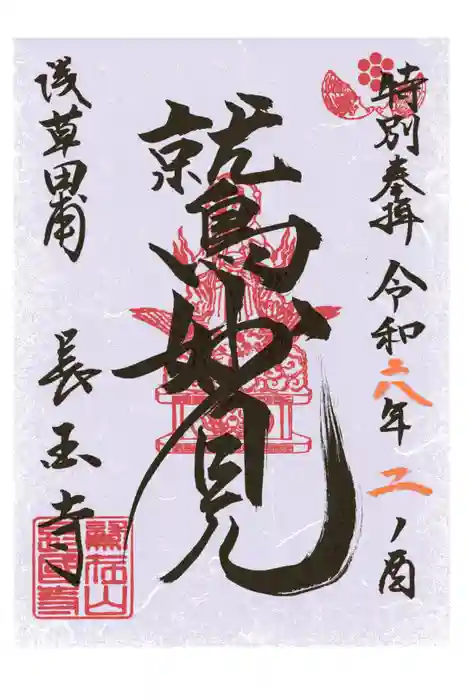 特別奉拝 令和六年 二ノ酉
鷲妙見
浅草田甫 長国寺
鷲在山
長國寺